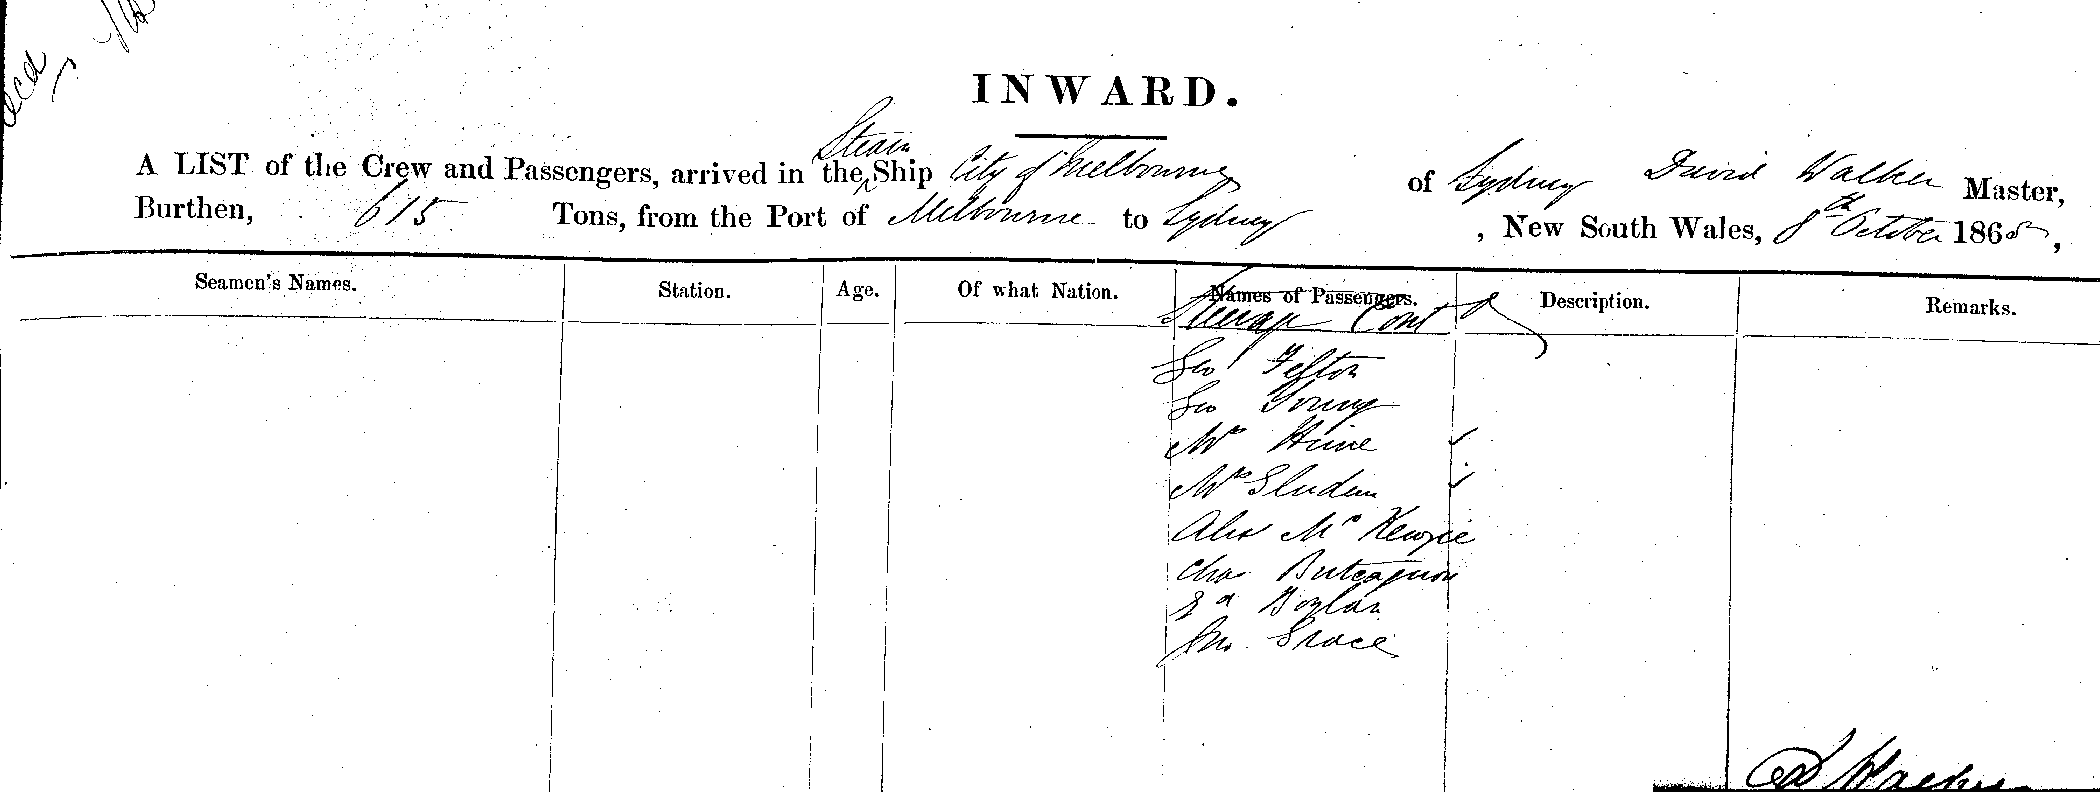 INWARD.
Steam
A LIST of the Crew and Passengers, arrived in the ^ Ship City of Melbourne of Sydney David Walker Master,
Burthen, 615 Tons, from the Port of Melbourne to Sydney, New South Wales, 8th October 1868,
Seamen's Names. Station. Age. Of what Nation. Names of Passengers. Description. Remarks.
Steerage Contd
Geo Felton
Geo Young
Mr Hine ✓
Mr Sluden ✓
Alex Mc Kenzie
Chas
Ed Boylan
Jno Grace